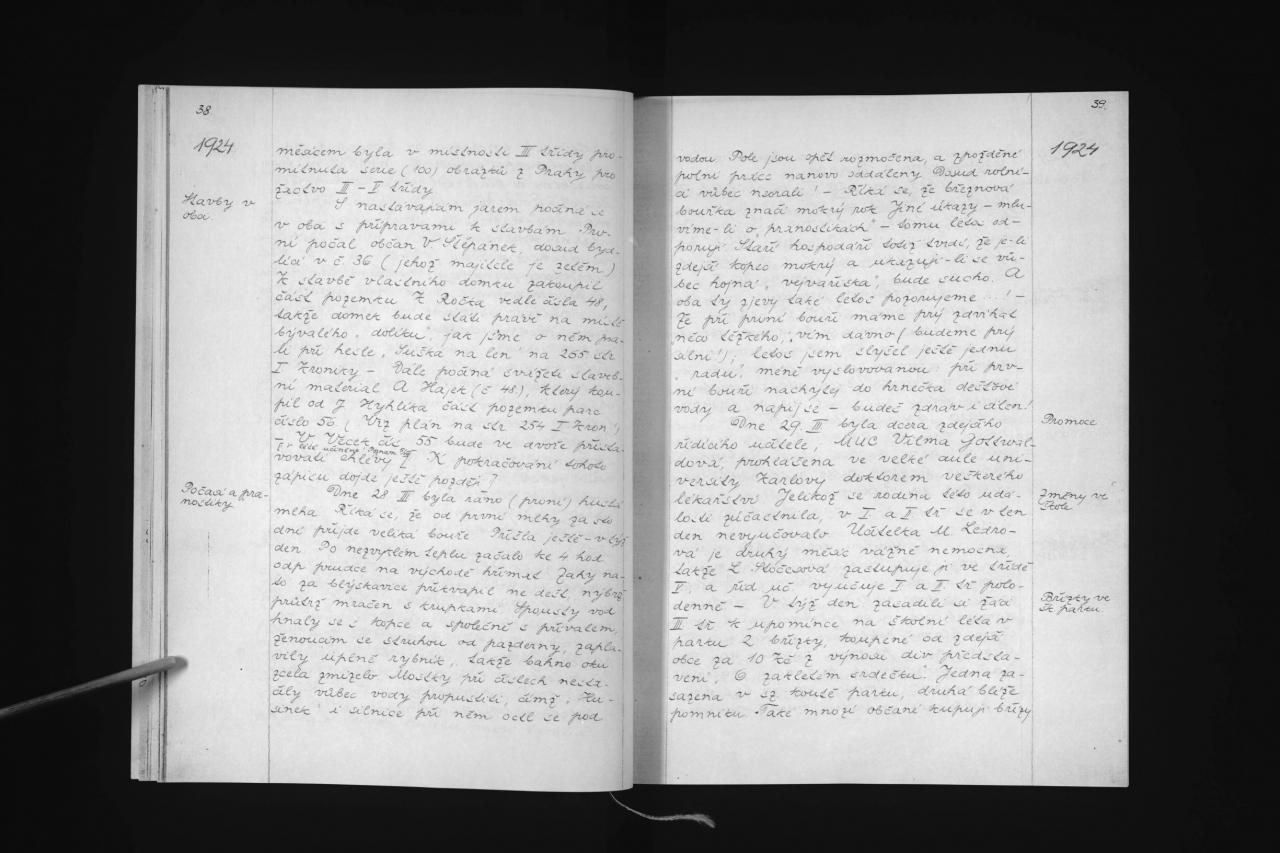 38.
1924
měsícem byla v místnosti III třídy pro-
mítnuta serie (100) obrázků z Prahy pro
žactvo II - I třídy
Stavby v
obci.
S nastávajícím jarem počíná se
v obci s přípravami k stavbám Prv-
ní počal občan V. Štěpánek, dosud byd-
lící v č 36 (jehož majitele je zetěm)
K stavbě vlastního domku zakoupil
část pozemku K Ročka vedle čísla 48,
takže domek bude státi právě na místě
bývalého "dolíku", jak jsme o něm psa-
li při hesle "Sušká na len" na 255 str
I kroniky - Dále počíná svážeti staveb-
ní materiál A Hájek (č 48), který kou-
pil od J Hyhlíka část pozemku parc
číslo 56. (Viz plán na str 254 I kron!)
V čís 55 bude ve dvoře přista-
vovati chlévy K pokračování tohoto
zápisu dojde ještě později?
Počasí a pra-
nostiky
Dne 28 III byla ráno (první) hustá
mlha Říká se, že od první mlhy za sto
dní přijde veliká bouře Přišla ještě v týž
den. Po nezvyklém teplu začalo ke 4 hod
odp prudce na východě hřímat Záhy na-
to za blýskavice přikvapil ne déšť, nýbrž
průtrž mračen s krupkami Spousty vod
hnaly se s kopce a společně s přívalem,
ženoucím se struhou od pazderny, zapla-
vily úplně rybník, takže bahno oku
zcela zmizelo Mostky při číslech nesta-
čily vůbec vody propustiti, čímž "Hu-
sinek" i silnice při něm octl se pod
39.
1924
vodou Pole jsou opět rozmočena, a zpožděné
polní práce nanovo oddáleny Dosud rolní-
ci vůbec neorali! - Říká se, že březnová
bouřka značí mokrý rok Jiné úkazy - mlu-
víme-li o "pranostikách" - tomu léta od-
porují Staří hospodáři totiž tvrdí, že je-li
zdejší kopec mokrý a ukazují-li se vů-
bec hojná "vejvařiska", bude sucho. A
oba ty zjevy také letos pozorujeme...! -
Že při první bouři máme prý zdvihat
něco těžkého, vím dávno (budeme prý
silní!), letos jsem slyšel ještě jednu
"radu" méně vyslovovanou: při prv-
ní bouři nachytej do hrnečka dešťové
vody a napij se - budeš zdráv i silen!
Promoce
Dne 29. III byla dcera zdejšího
řídícího učitele, MUC Vilma Gottwal-
dová, prohlášena ve velké aule uni-
versity Karlovy doktorem veškerého
lékařství Jelikož se rodina této udá-
Změny ve
škole.
losti zúčastnila, v I a II tř se v ten
den nevyučovalo Učitelka M. Ledro-
vá je druhý měsíc vážně nemocna,
takže L Stočesová zastupuje ji ve třídě
V, a říd uč vyučuje I a II tř polo-
denně - V týž den zasadili si žáci
Břízky ve
šk parku
III tř k upomínce na školní léta v
parku 2 břízky, koupené od zdejší
obce za 10 Kč z výnosu div představ-
vení "O zakletém srdečku" Jedna za-
sazena v sz koutě parku, druhá blíže
pomníku Také mnozí občané kupují břízy